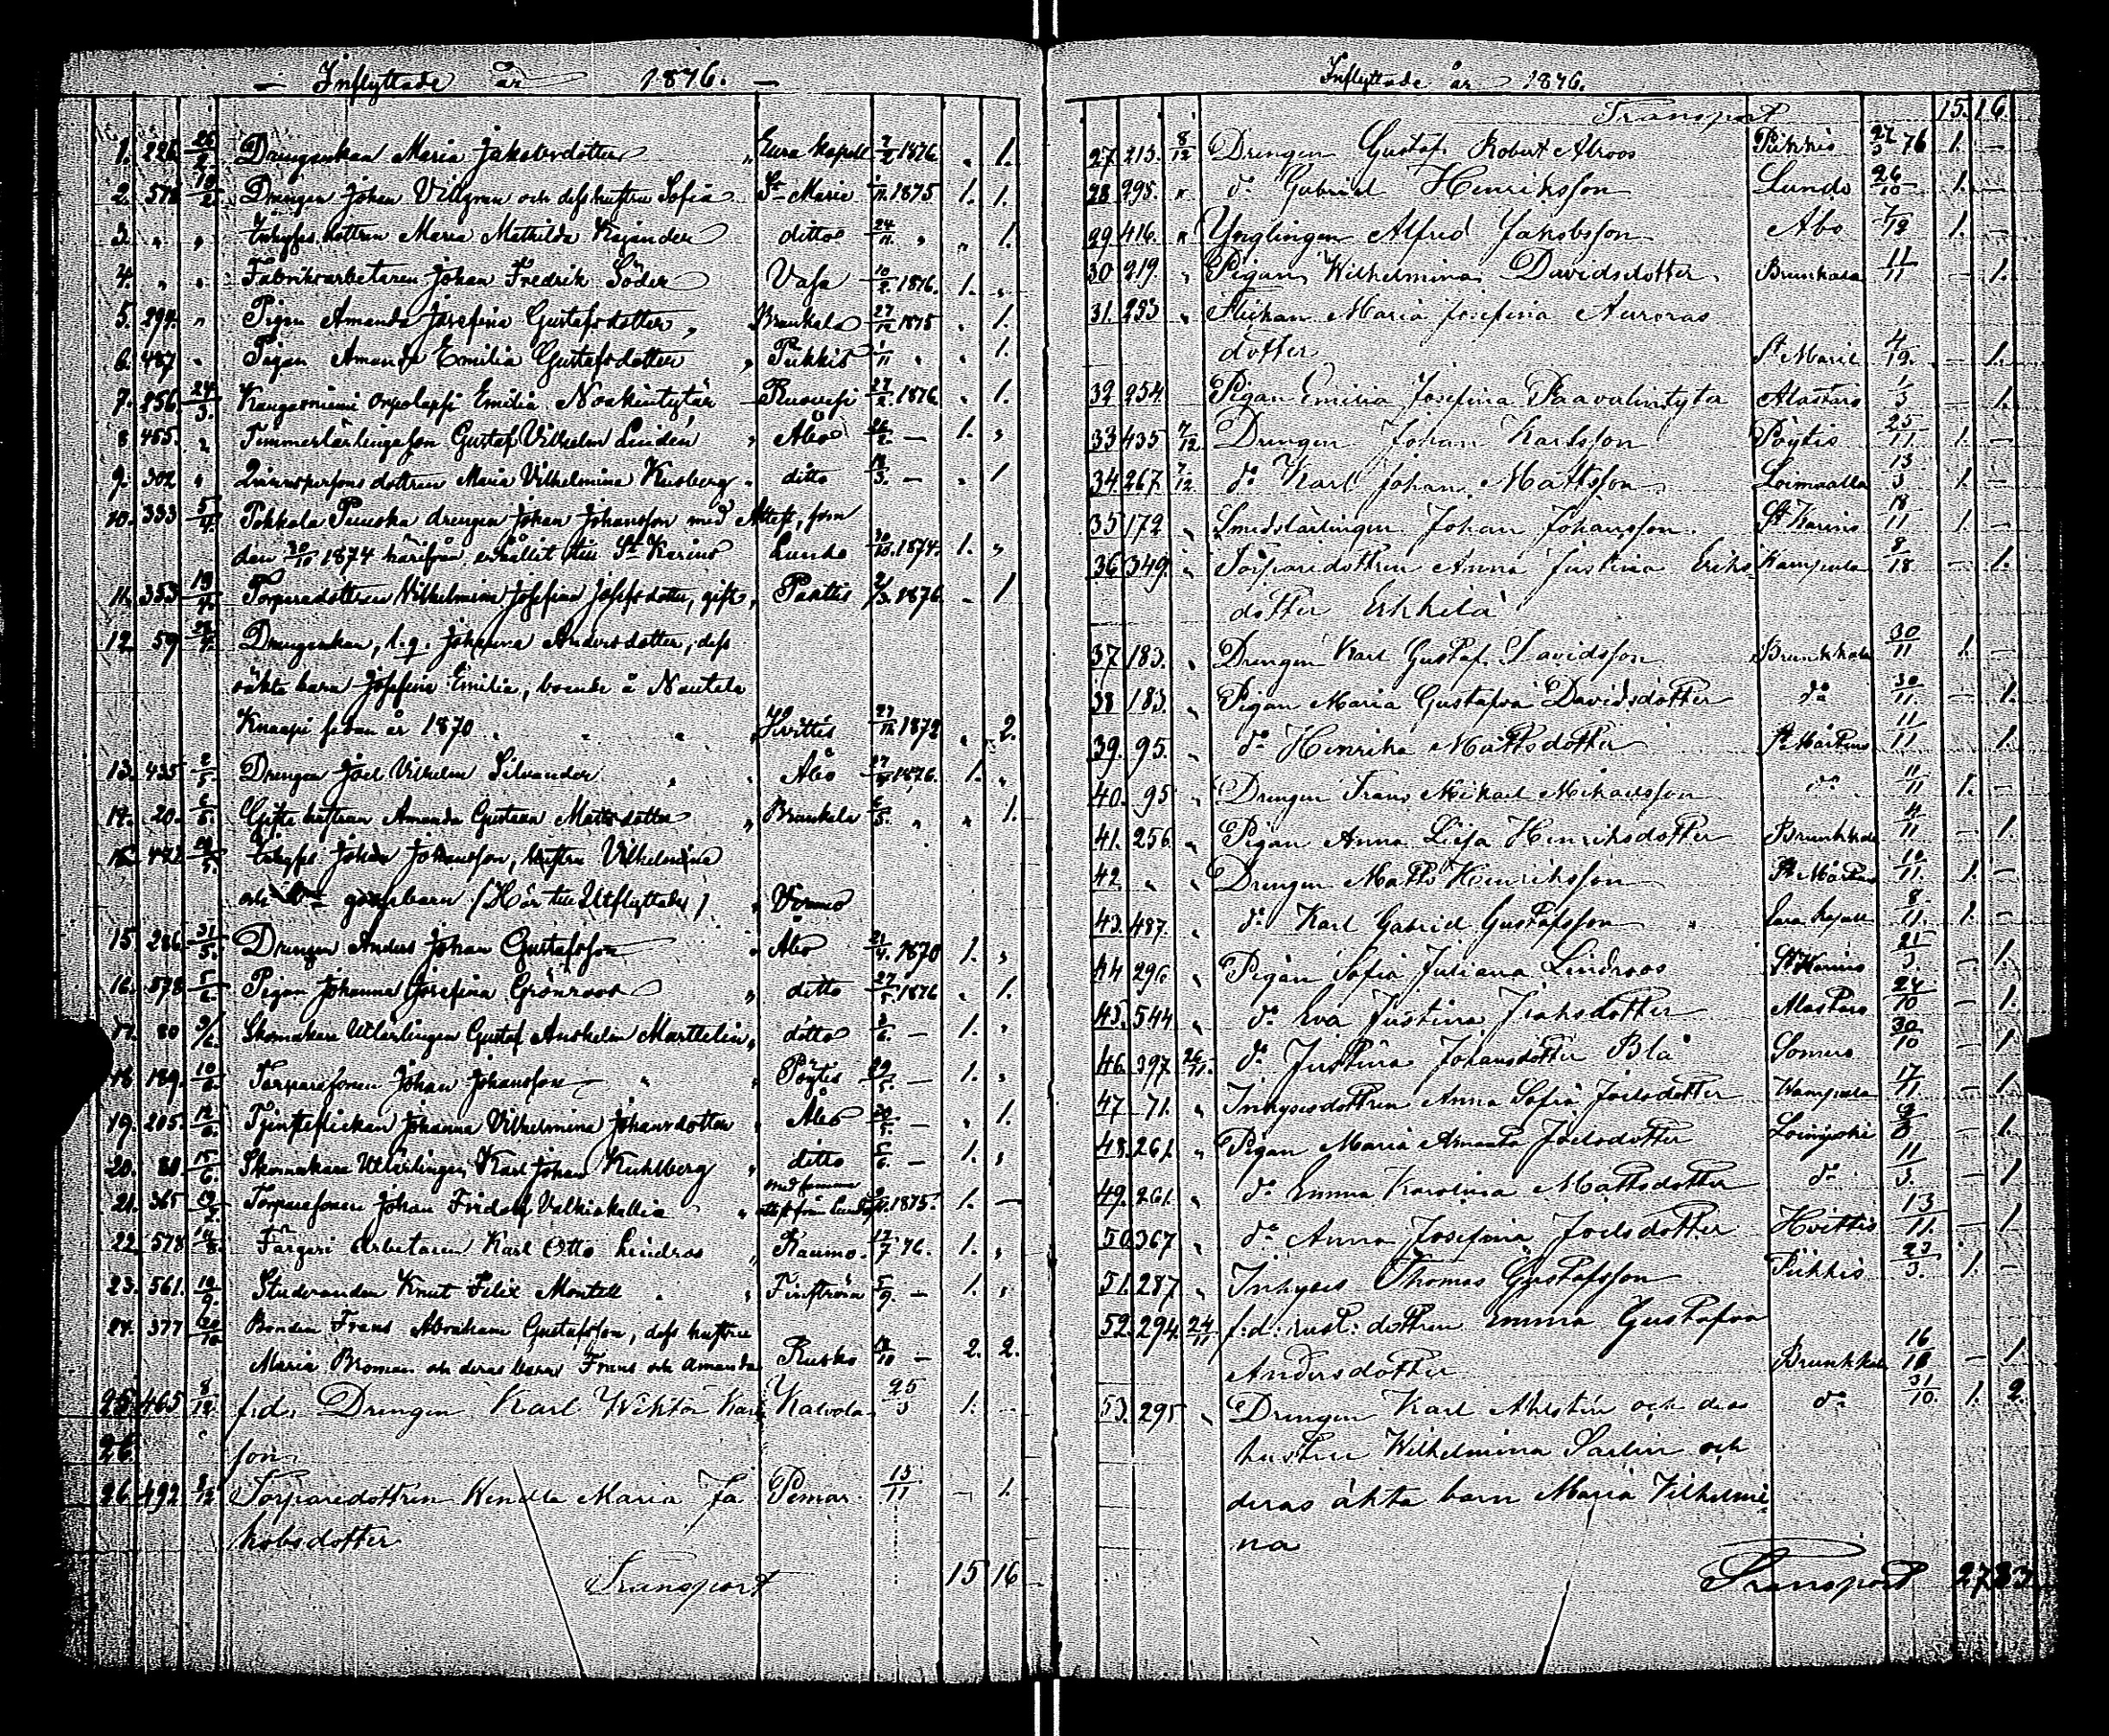 — Inflyttade år 1876. —
1. 226. 25/2. Drängenkan Maria Jakobsdotter „ Eura Kapell 7/2 1876. „ 1.
2. 578 10/2. Drängen Johan Villgren och dess hustru Sofia St Marie 1875 1. 1.
3. „ „ Inhyses dottren Maria Mathilda Kajander ditto 24/11. „ „ 1.
4. „ „ Fabriksarbetaren Johan Fredrik Söder Vasa 10/2. 1876. 1. „
5. 294. „ Pigan Amanda Josefina Gustafsdotter „ Brunkala 27/12 1875 „ 1.
6. 487 „ Pigan Amanda Emilia Gustafsdotter „ Pikkis 1/11 „ „ 1.
7. 256. 24/3. Kangasniemi Emilia Noakintytär Ruovesi 27/2. 1876. „ 1.
8 455. „ Timmerlärlingeson Gustaf Vilhelm Lindén „ Åbo 26/2. — 1. „
9. 302 „ Qvinnspersons dottren Maria Vilhelmina Kusberg „ ditto 18/3. — „ 1
10. 333 5/4. Pokkala Punska drengen Johan Johansson med Attest, som
den 30/10 1874 härifrån erhållit till St Karins Lundo 30/10. 1874. 1. „
11. 353 19/4. Torparedottren Vilhelmina Josefina Josefsdotter, gift, Paatis 2/3. 1876. - 1.
12 59 28/4. Drengenkan, l. q. Johanna Andersdotter, dess
oäkta barn Josefina Emilia, boende å Nautela
Knaapi sedan år 1870 „ „ „ Hvittis 1872 „ 2.
13. 435 2/5. Drengen Joel Vilhelm Silvander „ Åbo 1876. 1. „
14. 20. 6/5. Gifta hustrun Amanda Gustava Mattsdotter „ Brunkala 6/5. „ „ 1.
Inhyses Johan Johansson, hustru Vilhelmina
och / Hör till Utflyttade / „ Vemo
15 286. 31/5. Drengen Anders Johan Gustafsson „ Åbo 21/4. 1870 1. „
16. 578 5/6. Pigan Johanna Josefina Grönroos „ ditto 27/5. 1876 „ 1.
17. 80 9/6. Skomakare Utlärlingen Gustaf Anshelm Marttelin „ ditto 2/6. — 1. „
18. 189. 10/6. Torparesonen Johan Johansson „ „ Pöytis 29/5. — 1. „
19. 205. 12/6. Tjensteflickan Johanna Vilhelmina Johansdotter „ Åbo 30/5. — „ 1.
20. 80 15/6. Skomakare Utlärlingen Karl Johan Kuhlberg „ ditto 6/6. — 1. „
21. 365 Torparesonen Johan Fridolf Valkiakallia „ med samma attest från Lundo 1875. 1. —
22. 578 14/8. Färgeri Arbetaren Karl Otto Lindros „ Raumo. 12/7 76. 1. „
23. 561. 19/9. Studeranden Knut Felix Montell „ „ Finström 5/9. — 1. „
24. 377 20/10 Bonden Frans Abraham Gustafsson, dess hustru
Maria Broman och deras barn Frans och Amanda Rusko — 2. 2.
25. 465 8/12. f.d. Drengen Karl Wiktor Karls Kalvola 25/3 1. —
26. son.
26. 492 8/12 Torparedottren Wendla Maria Ja Pemar 13/11 — 1.
kobsdotter
Transport 15 16
Inflyttade år 1876.
Transport 15. 16.
27 213. 8/12 Drengen Gustaf Robert Alroos Pikkis 76 1. —
28 295. „ do Gabriel Henriksson Lundo 26/10 1. —
29 416. „ Ynglingen Alfred Jakobsson Åbo 7/12 1. —
30 219. „ Pigan Wilhelmina Davidsdotter Brunkala 11/11 — 1.
31. 253 „ Flickan Maria Josefina Auroras
dotter St Marie — 1.
32 254 Pigan Emilia Josefina Paavalintytar Alastaro 1/3 — 1.
33 435 7/12 Drengen Johan Karlsson Pöytis 25/11 1. —
34. 267. 7/12 do Karl Johan Mattsson Loimaalla 13/3 1. —
35 172 „ Smedslärlingen Johan Johansson St Karins 18/11 1. —
36 349. „ Torparedottren Anna Justina Eriks Kampula — 1.
dotter Erkkilä
37 183. „ Drengen Karl Gustaf Davidsson Brunkkala 30/11 1. —
38 183. „ Pigan Maria Gustafva Davidsdotter do 30/11. — 1.
39. 95. „ do Henrika Mattsdotter St Mårtens 11/11 1.
40. 95 „ Drengen Frans Mikael Mikaelsson do 11/11 1. —
41. 256. „ Pigan Anna Liisa Henriksdotter Brunkkala 4/11 — 1.
42. „ „ Drengen Matts Henriksson St Mårtens 10/11. 1. —
43. 487. „ do Karl Gabriel Gustafsson „ Eura kapell 8/11 1. —
44 296 „ Pigan Sofia Juliana Lindroos St Karins 21/3. — 1.
45. 544 „ do Eva Justina Isaksdotter Alastaro 24/10 — 1.
46. 397 26/11. do Justina Johansdotter Blå Somero 30/10 — 1
47 71. „ Inhysesdottren Anna Sofia Joelsdotter Wampula 17/11 — 1.
48. 261. „ Pigan Maria Amanda Joelsdotter Loimijoki — 1.
49. 261. „ do Emma Karolina Mattsdotter do 11/3. — 1
50 367 „ do Anna Josefina Joelsdotter Hvittis 13/11. — 1
51. 287 „ Inhyses Thomas Gustafsson Pikkis 23/3. 1. —
52. 294. 24/11 f:d: rust: dottren Emma Gustafva
Andersdotter Brunkkala — 1.
53. 295 „ Drengen Karl Ahlstén och dess do 31/10. 1. 2.
hustru Wilhelmina Sarlin och
deras äkta barn Maria Vilhelmi
na
Transport 27 33